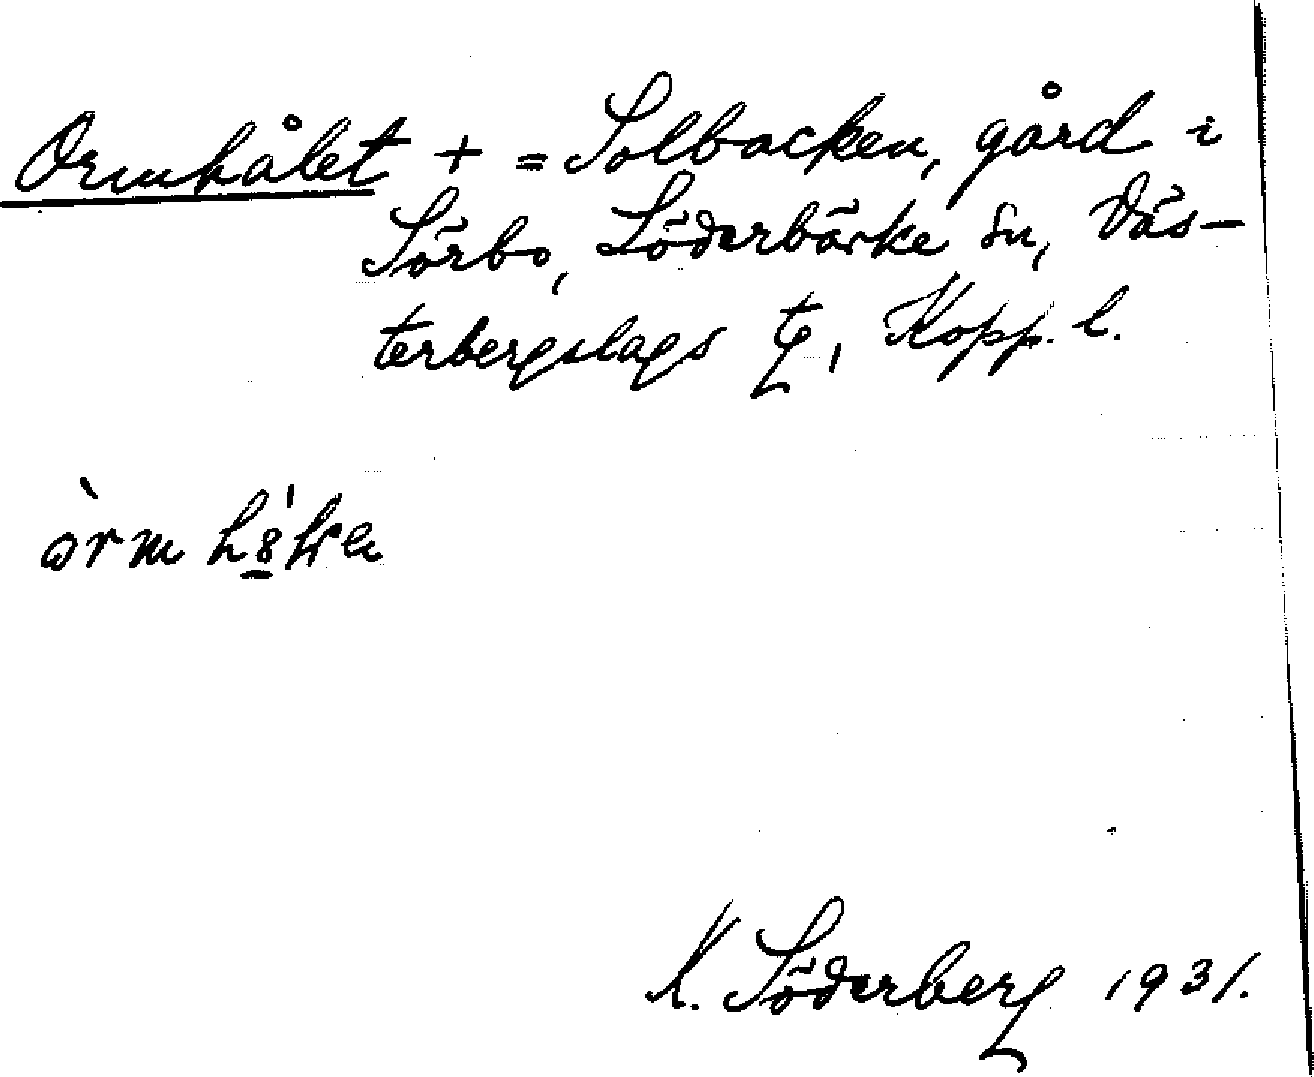 Ormhålet + = Solbacken, gård i
Sörbo, Söderbärke sn, Väs-
terbergslags tg, Kopp. l.
K. Söderberg 1931.